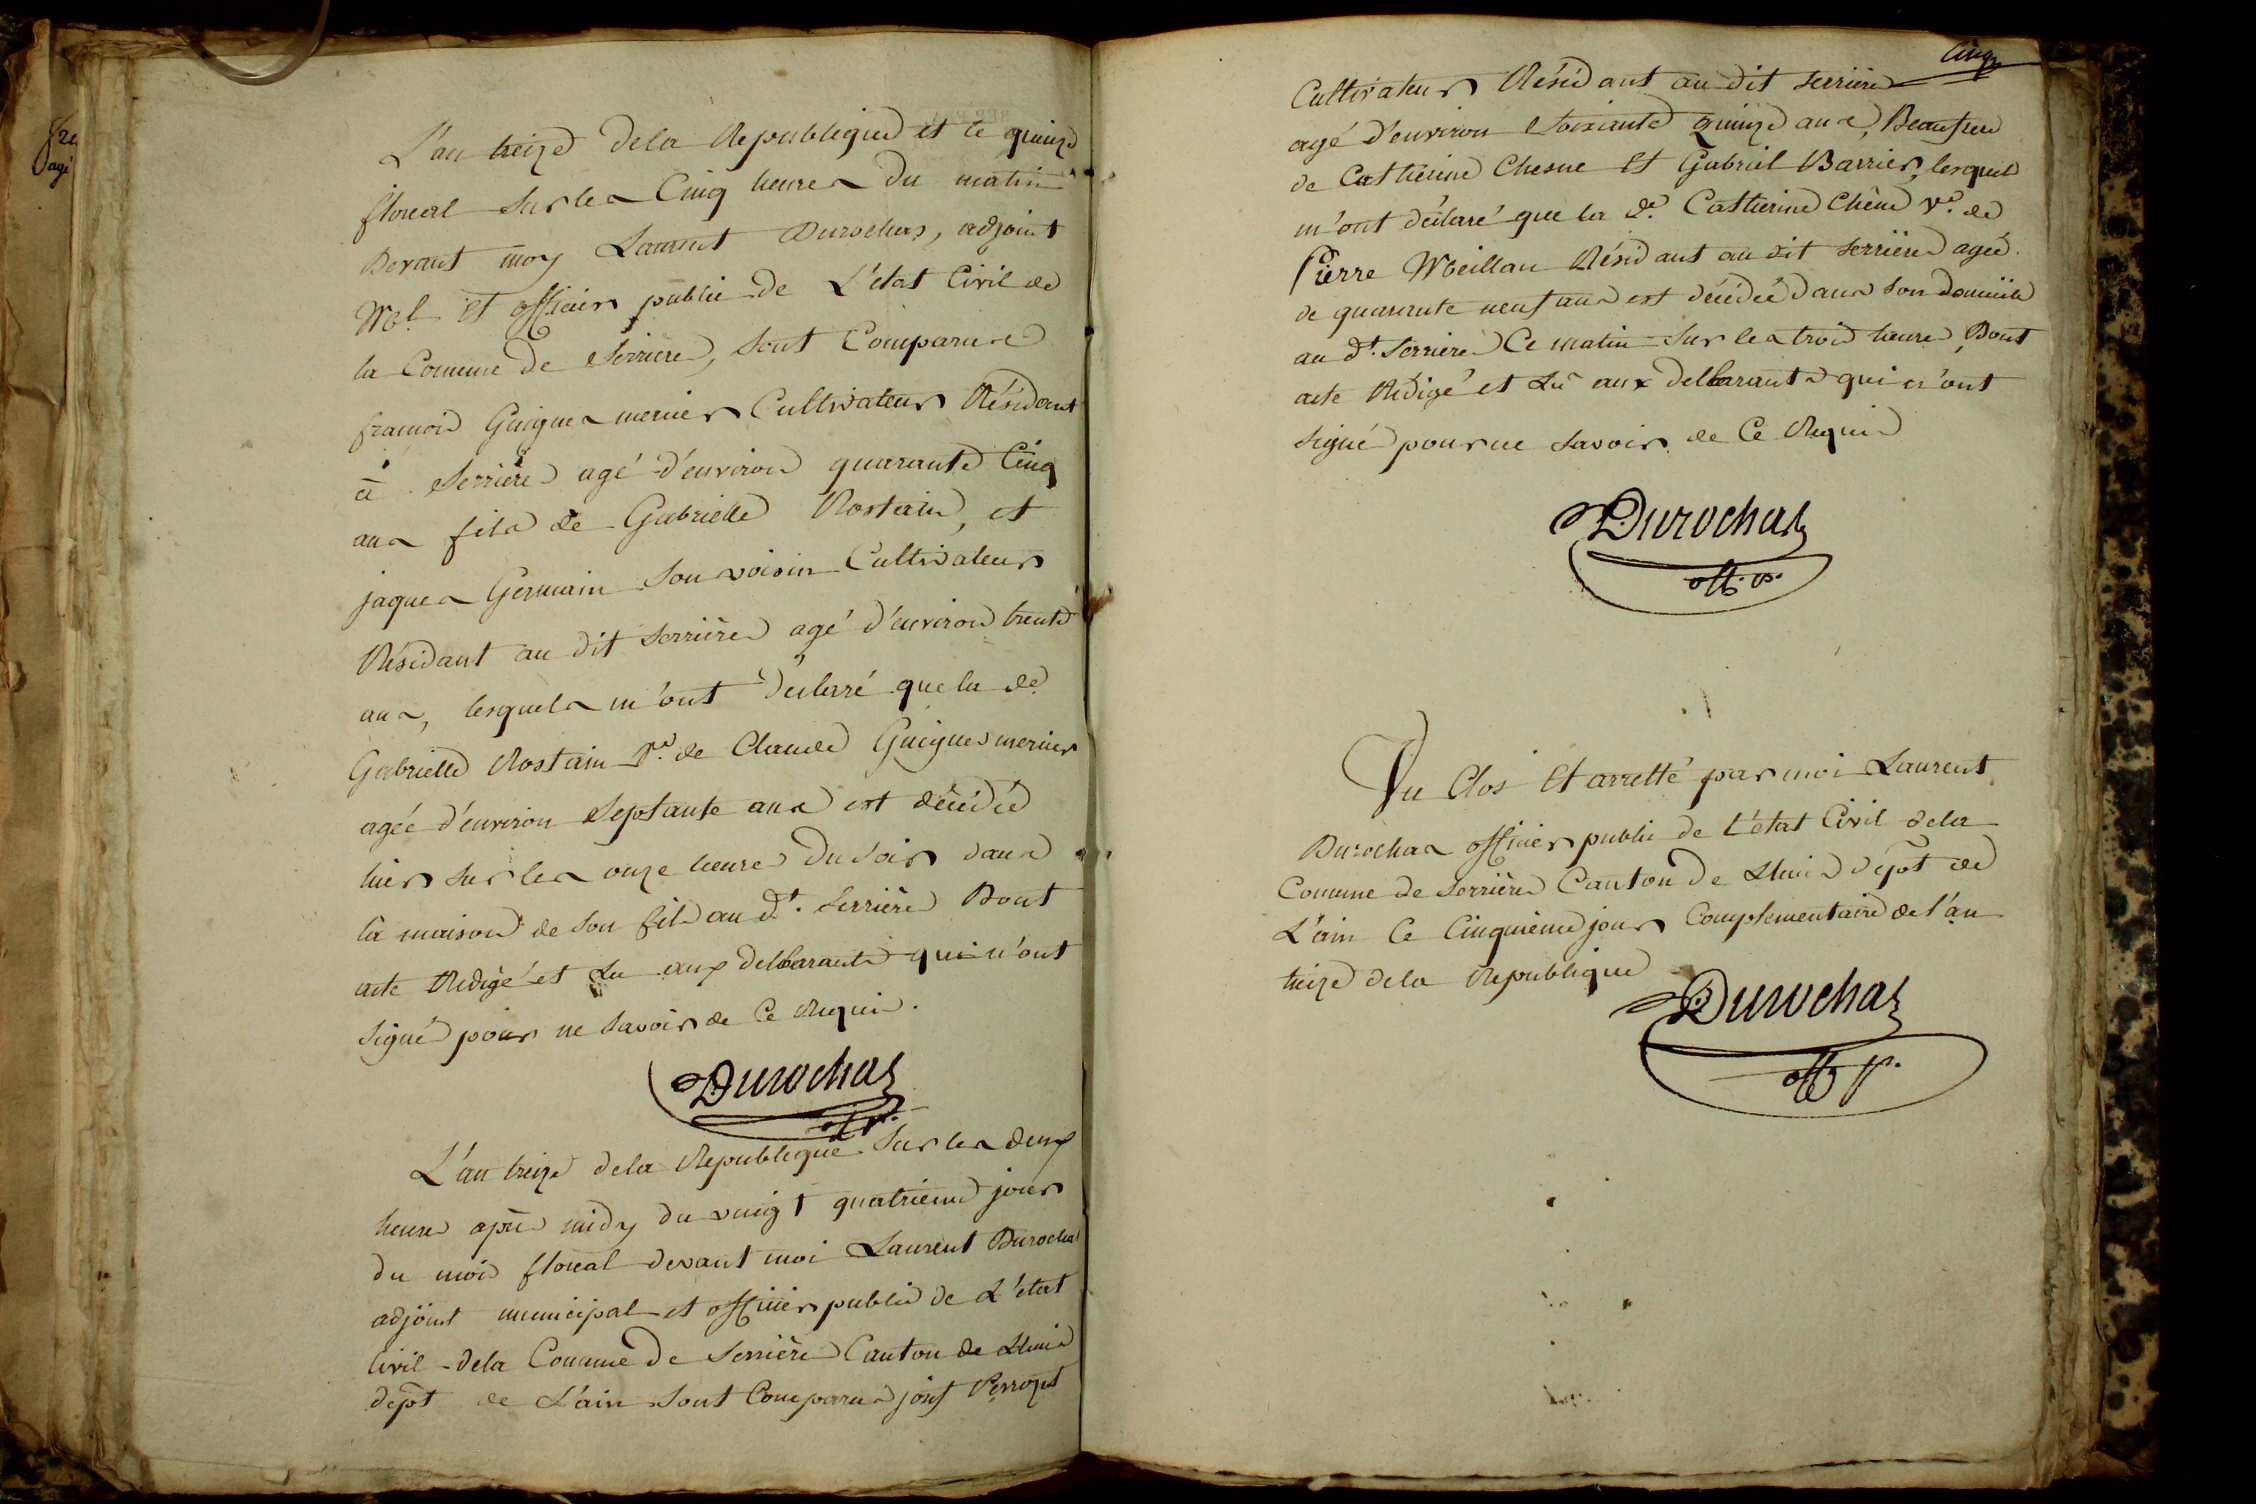 L'an treize dela Republique et le quinze
floreal sur les Cinq heures du matin
Devant moy Laurent Durochas, adjoint
Mpl et officier public de L'etat Civil de
la Comune de Serriere, sont Comparus
francois Guigues mernier Cultivateur Résidant
à Serriere agé d'environ quarante Cinq
ans fils de Gabrielle Rostain, et
jaques Germain Son voisin Cultivateur
Résidant au dit Serrière agé d'environ trente
ans, lesquels m'ont déclarré que la de
Gabrielle Rostain Ve de Claude Guigues mernier
agée d'environ Septante ans est décédée
hier sur les onze heure du Soir dans
la maison de son fils au dt. Serrière Dont
acte Redigé et Lu aux declarants qui n'ont
Signé pour ne Savoir de Ce Requis.
Durochas
off. p.
L'an treize dela Republique Sur les deux
heure après midy du vingt quatrieme jour
du mois floreal devant moi Laurent Durochas
adjoint municipal et officier public de L'état
Civil dela Comune De Serrière Canton de Lhuis
dept de L'ain Sont Comparus josf Perrozet
Cinq
Cultivateur Résidant au dit Serriere
agé d'environ Soixante quinze ans, Beaufrere
de Catherine Chesne Et Gabriel Barrier, lesquels
m'ont déclaré que la de Catherine Chêne Ve. de
Pierre Meillan Résidant au dit Serriere agée
de quarante neuf ans est décédée dans son domicile
au dt. Serriere Ce matin Sur les trois heure, Dont
acte Rédigé et Lû aux declarants qui n'ont
Signé pour ne Savoir de Ce Requis
Durochas
off. p.
Vu Clos Et arretté par moi Laurent
Durochas officier public de L'état Civil dela
Comune de Serrière Canton De Lhuis dept de
L'ain Ce Cinquieme jour Complementaire de l'an
treize dela Republique
Durochas
off p.